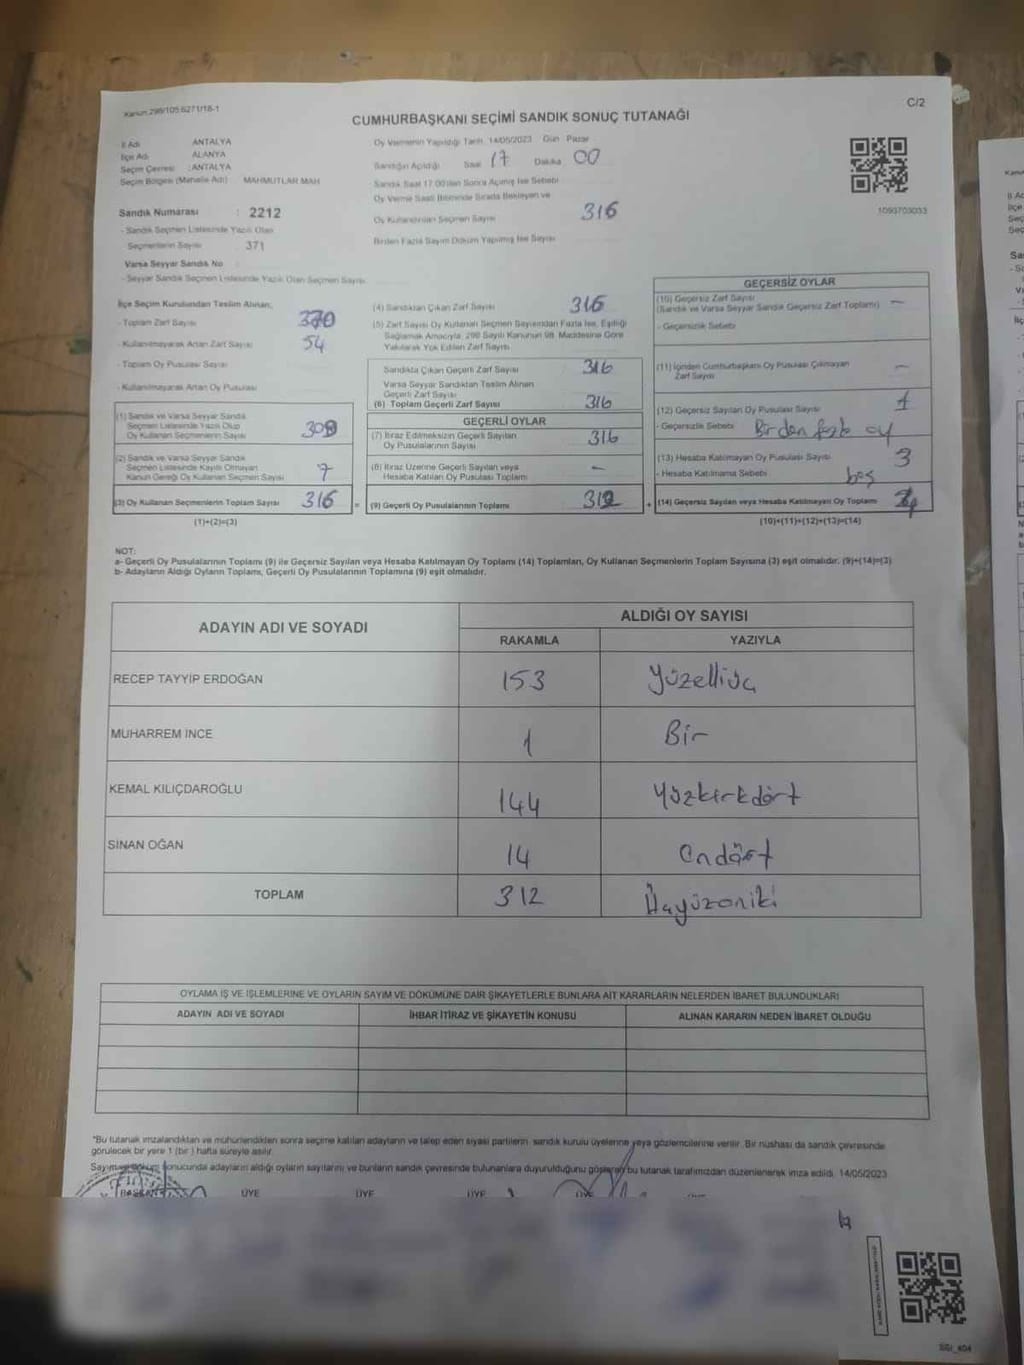 Kanun:298/105.6271/18-1
C/2
CUMHURBAŞKANI SEÇİMİ SANDIK SONUÇ TUTANAĞI
İl Adı ANTALYA
İlçe Adı ALANYA
Seçim Çevresi :ANTALYA
Seçim Bölgesi (Mahalle Adı) MAHMUTLAR MAH
Sandık Numarası : 2212
- Sandık Seçmen Listesinde Yazılı Olan
Seçmenlerin Sayısı 371
Varsa Seyyar Sandık No
- Seyyar Sandık Seçmen Listesinde Yazılı Olan Seçmen Sayısı
Oy Vermenin Yapıldığı Tarih 14/05/2023 Gün Pazar
Sandığın Açıldığı Saat 17 Dakika 00
Sandık Saat 17.00'den Sonra Açılmış İse Sebebi
Oy Verme Saati Bitiminde Sırada Bekleyen ve
Oy Kullandırılan Seçmen Sayısı 316
Birden Fazla Sayım Döküm Yapılmış İse Sayısı
1093703033
İlçe Seçim Kurulundan Teslim Alınan;
- Toplam Zarf Sayısı 370
- Kullanılmayarak Artan Zarf Sayısı 54
- Toplam Oy Pusulası Sayısı
- Kullanılmayarak Artan Oy Pusulası
(1) Sandık ve Varsa Seyyar Sandık
Seçmen Listesinde Yazılı Olup
Oy Kullanan Seçmenlerin Sayısı 309
(2) Sandık ve Varsa Seyyar Sandık
Seçmen Listesinde Kayıtlı Olmayan
Kanun Gereği Oy Kullanan Seçmen Sayısı 7
(3) Oy Kullanan Seçmenlerin Toplam Sayısı 316
(1)+(2)=(3)
(4) Sandıktan Çıkan Zarf Sayısı 316
(5) Zarf Sayısı Oy Kullanan Seçmen Sayısından Fazla İse, Eşitliği
Sağlamak Amacıyla, 298 Sayılı Kanunun 98. Maddesine Göre
Yakılarak Yok Edilen Zarf Sayısı
Sandıkta Çıkan Geçerli Zarf Sayısı 316
Varsa Seyyar Sandıktan Teslim Alınan
Geçerli Zarf Sayısı
(6) Toplam Geçerli Zarf Sayısı 316
GEÇERLİ OYLAR
(7) İtiraz Edilmeksizin Geçerli Sayılan
Oy Pusulalarının Sayısı 316
(8) İtiraz Üzerine Geçerli Sayılan veya
Hesaba Katılan Oy Pusulası Toplamı –
= (9) Geçerli Oy Pusulalarının Toplamı 312 +
GEÇERSİZ OYLAR
(10) Geçersiz Zarf Sayısı
(Sandık ve Varsa Seyyar Sandık Geçersiz Zarf Toplamı) –
- Geçersizlik Sebebi
(11) İçinden Cumhurbaşkanı Oy Pusulası Çıkmayan
Zarf Sayısı –
(12) Geçersiz Sayılan Oy Pusulası Sayısı 1
- Geçersizlik Sebebi Birden fazla oy
(13) Hesaba Katılmayan Oy Pusulası Sayısı 3
- Hesaba Katılmama Sebebi boş
(14) Geçersiz Sayılan veya Hesaba Katılmayan Oy Toplamı
(10)+(11)+(12)+(13)=(14)
NOT:
a- Geçerli Oy Pusulalarının Toplamı (9) ile Geçersiz Sayılan veya Hesaba Katılmayan Oy Toplamı (14) Toplamları, Oy Kullanan Seçmenlerin Toplam Sayısına (3) eşit olmalıdır. (9)+(14)=(3)
b- Adayların Aldığı Oyların Toplamı, Geçerli Oy Pusulalarının Toplamına (9) eşit olmalıdır.
ADAYIN ADI VE SOYADI ALDIĞI OY SAYISI
RAKAMLA YAZIYLA
RECEP TAYYİP ERDOĞAN 153 Yüzelliüç
MUHARREM İNCE 1 Bir
KEMAL KILIÇDAROĞLU 144 Yüzkırkdört
SİNAN OĞAN 14 Ondört
TOPLAM 312 Üçyüzoniki
OYLAMA İŞ VE İŞLEMLERİNE VE OYLARIN SAYIM VE DÖKÜMÜNE DAİR ŞİKAYETLERLE BUNLARA AİT KARARLARIN NELERDEN İBARET BULUNDUKLARI
ADAYIN ADI VE SOYADI İHBAR İTİRAZ VE ŞİKAYETİN KONUSU ALINAN KARARIN NEDEN İBARET OLDUĞU
*Bu tutanak imzalandıktan ve mühürlendikten sonra seçime katılan adayların ve talep eden siyasi partilerin sandık kurulu üyelerine veya gözlemcilerine verilir. Bir nüshası da sandık çevresinde
görülecek bir yere 1 (bir) hafta süreyle asılır.
Sayım ve döküm sonucunda adayların aldığı oyların sayılarını ve bunların sandık çevresinde bulunanlara duyurulduğunu gösteren bu tutanak tarafımızdan düzenlenerek imza edildi. 14/05/2023
BAŞKAN ÜYE ÜYE ÜYE ÜYE ÜYE